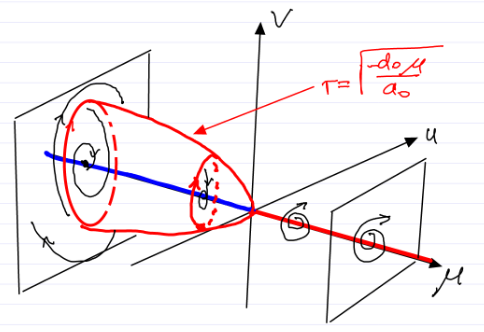 V
r=√(-d₀μ/a₀)
u
μ